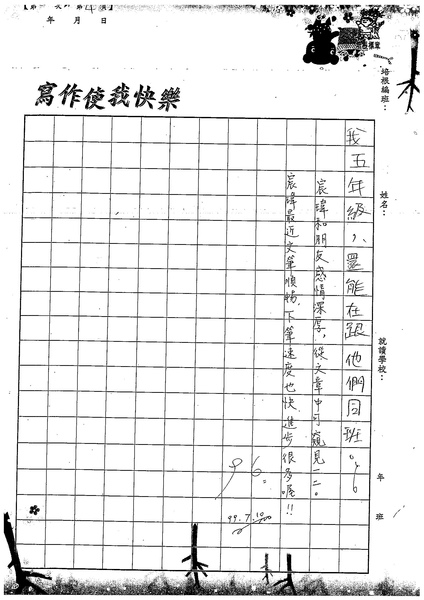 年 月 日
寫作使我快樂
培根編班：
姓名：
就讀學校：
年 班
我五年級，還能在跟他們同班。
宸瑋和朋友感情深厚，從文章中可窺見一二。
宸瑋最近文筆順暢，下筆速度也快，進步很多喔!!
96。
99.7.10